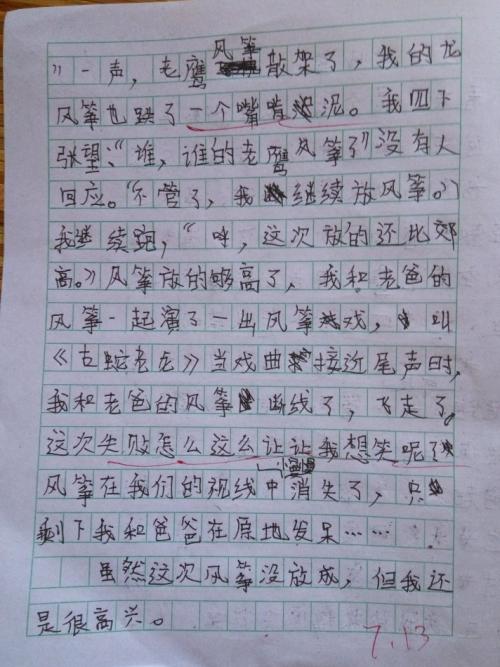 》一声，老鹰风筝散架了，我的龙
风筝也跌了一个嘴啃泥。我四下
张望、“谁，谁的老鹰风筝了”没有人
回应。“不管了，我继续放风筝。”
我继续跑，“咩，这次放的还比郊
高。”风筝放的够高了，我和老爸的
风筝一起演了一出风筝戏，叫
《古蛇老龙》当戏曲接近尾声时，
我和老爸的风筝断线了，飞走了。
这次失败怎么这么让让我想笑呢了
风筝在我们的视线中消失了，只
剩下我和爸爸在原地发呆……
虽然这次风筝没放成，但我还
是很高兴。
7.13